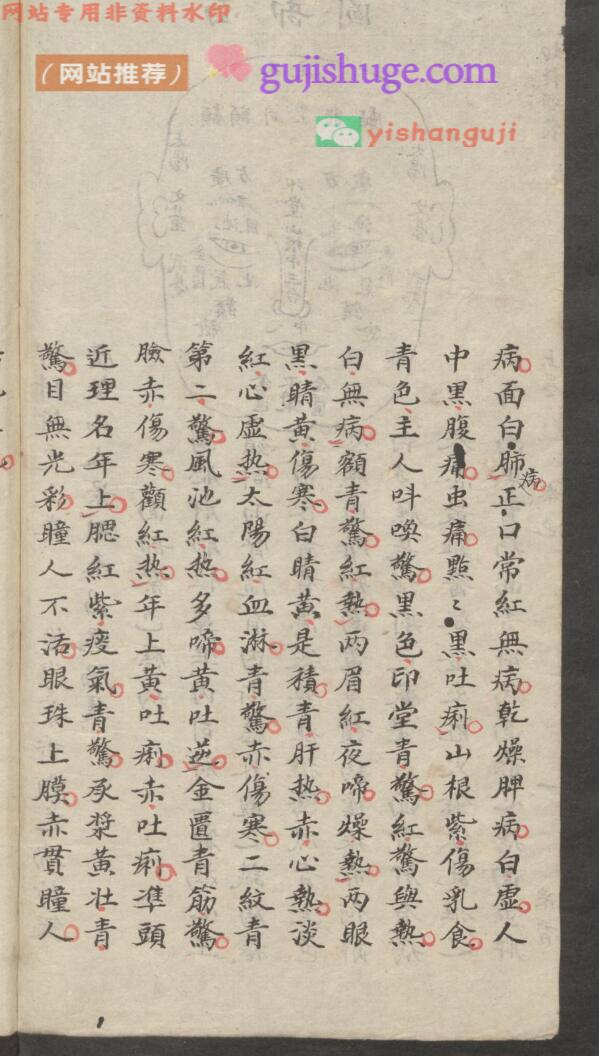 网站专用非资料水印
（网站推荐）
gujishuge.com
yishanguji
病面白肺正口常紅無病乾燥脾病白虛人
病
中黑腹痛虫痛㸃〻黑吐痢山根紫傷乳食
青色主人呌喚驚黑色印堂青驚紅驚與熱
白無病額青驚紅熱两眉紅夜啼燥熱两眼
黑睛黃傷寒白睛黃是積青肝热赤心熱淡
紅心虛热太陽紅血淋青驚赤傷寒二紋青
第二驚風池紅热多啼黃吐逆金匱青筋驚
臉赤傷寒顴紅热年上黃吐痢赤吐痢準頭
近理名年上腮紅紫痰氣青驚承漿黃壮青
驚目無光彩瞳人不活眼珠上膜赤貫瞳人